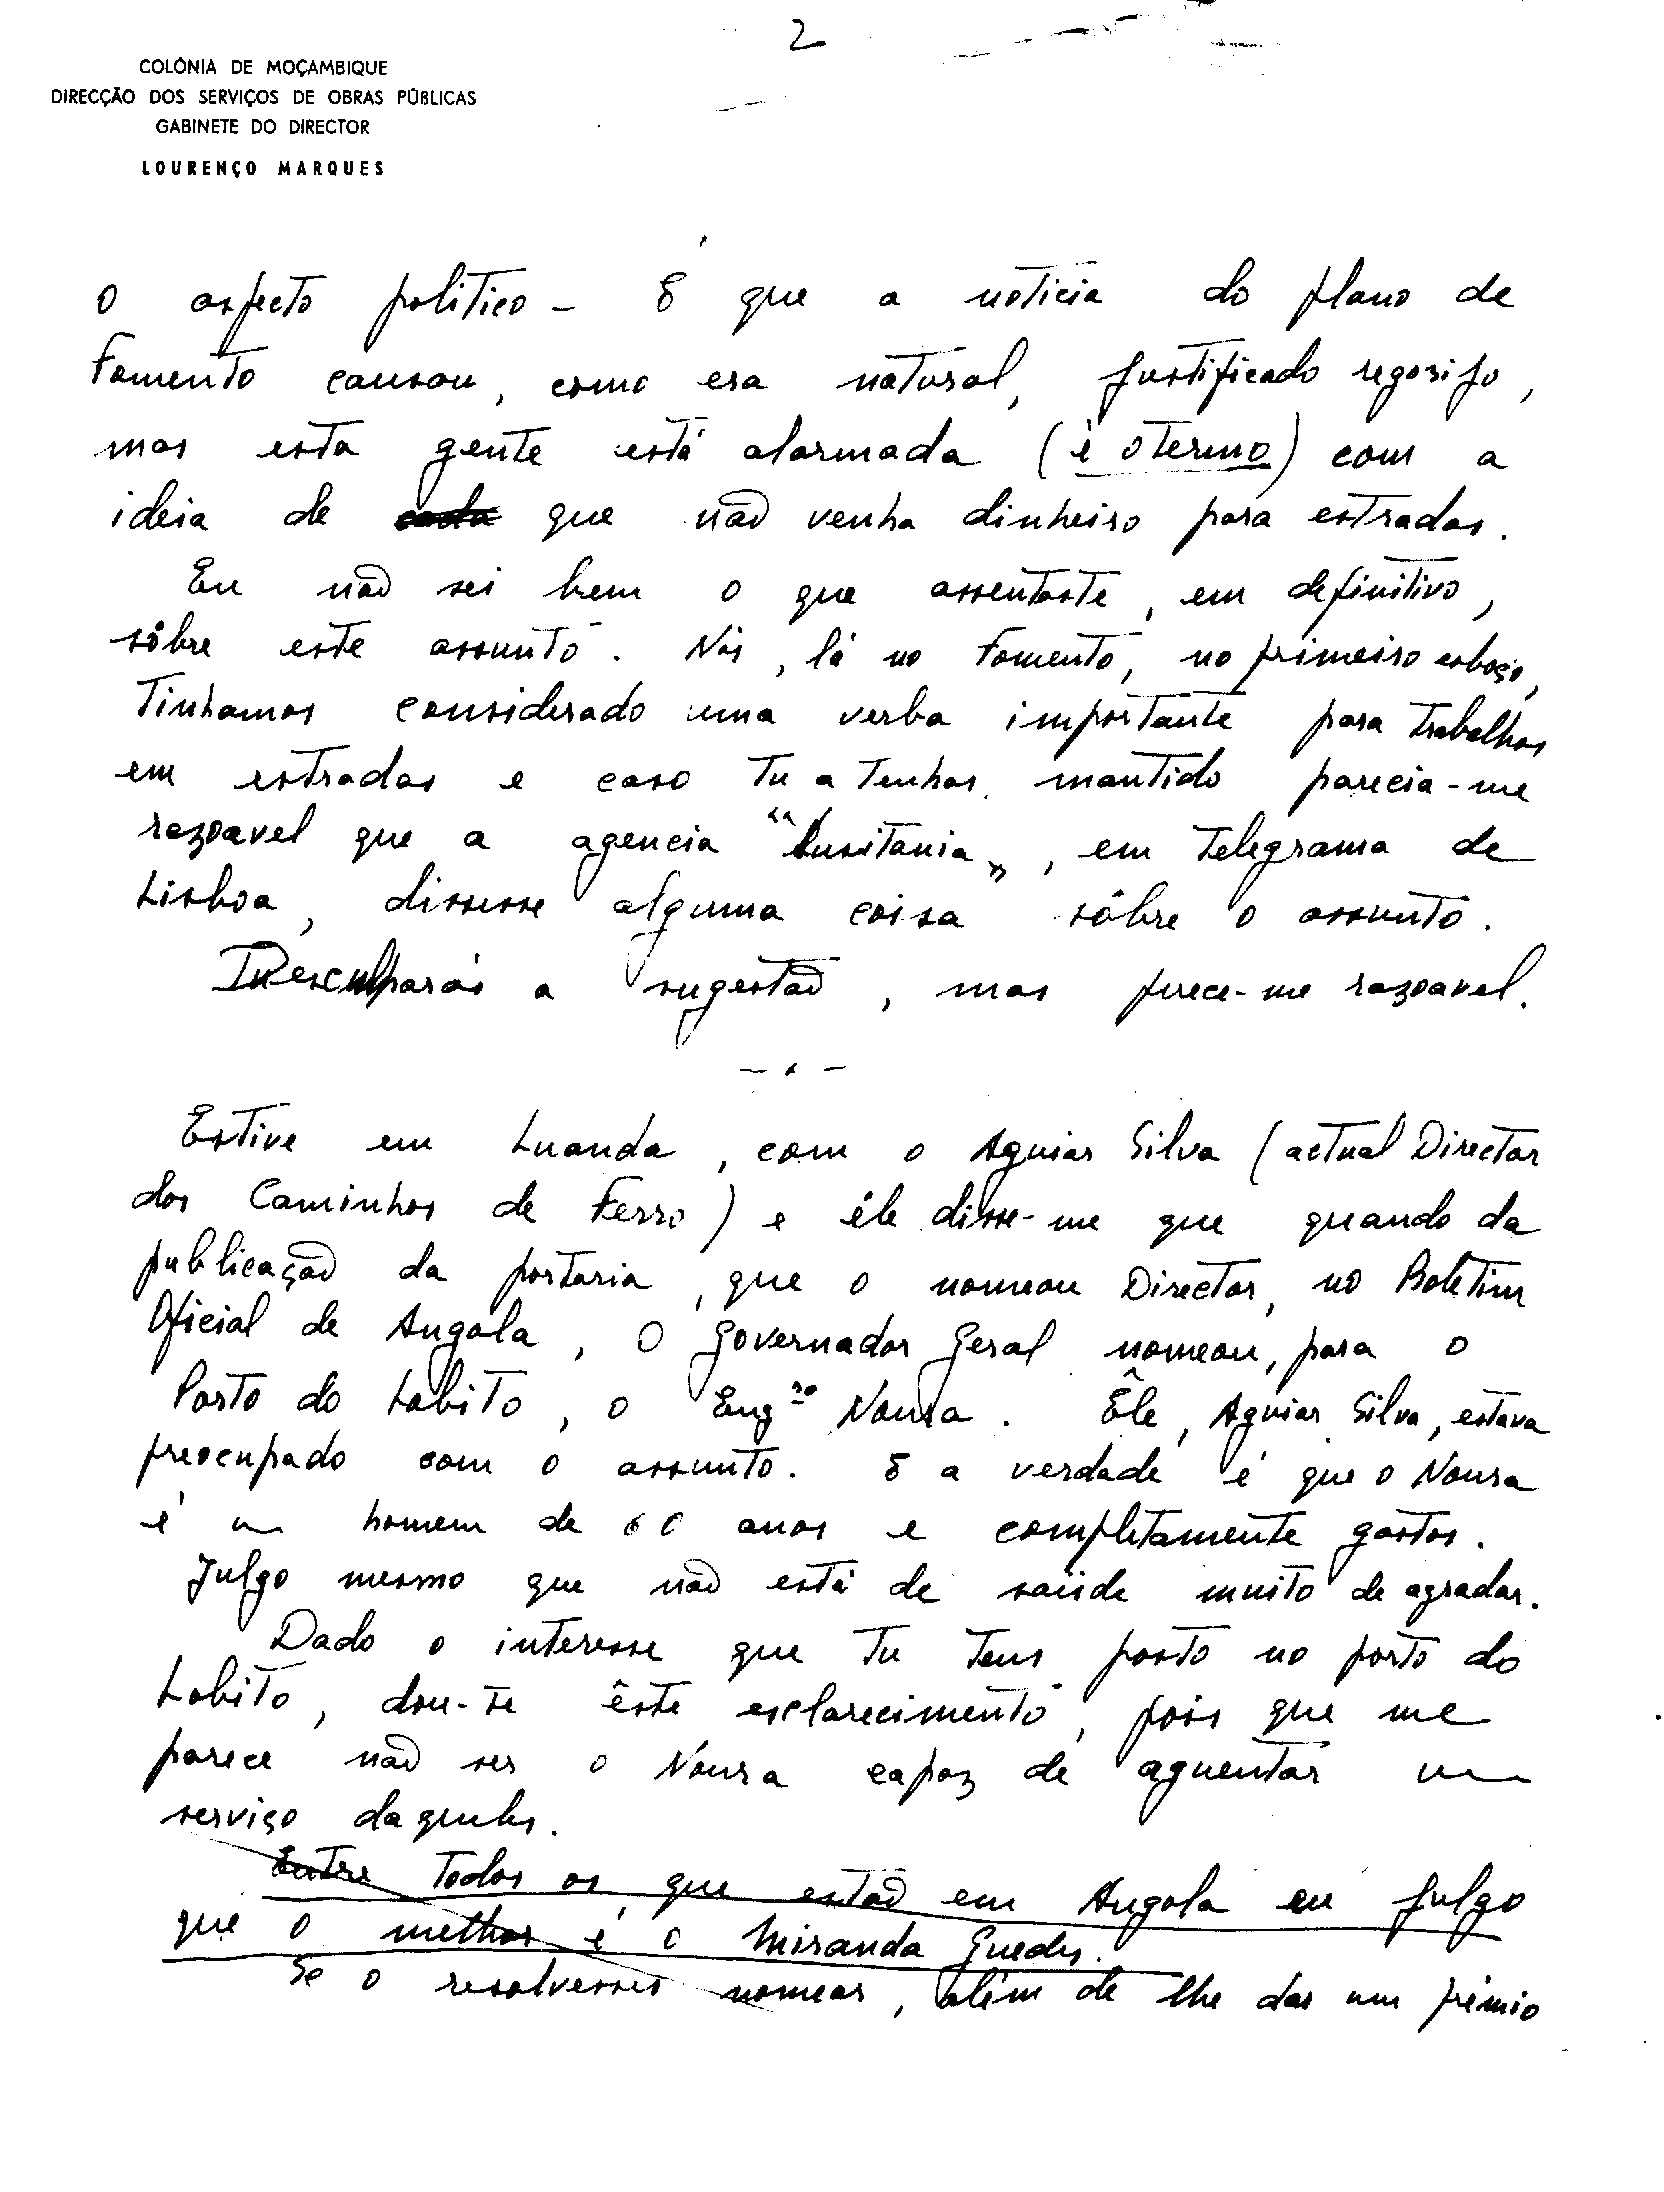 2
COLÓNIA DE MOÇAMBIQUE
DIRECÇÃO DOS SERVIÇOS DE OBRAS PÚBLICAS
GABINETE DO DIRECTOR
LOURENÇO MARQUES
o aspecto politico - É que a noticia do plano de
Fomento causou, como era natural, justificado regosijo,
mas esta gente está alarmada (é o termo) com a
ideia de que não venha dinheiro para estradas.
Eu não sei bem o que assentaste, em definitivo,
sôbre este assunto. Nós, lá no Fomento, no primeiro esboço,
Tinhamos considerado uma verba importante para trabalhos
em estradas e caso tu a tenhas mantido parecia-me
razoavel que a agencia "Lusitania", em telegrama de
Lisboa, dissesse alguma coisa sôbre o assunto.
Desculparás a sugestão, mas parece-me razoavel.
- . -
Estive em Luanda, com o Aguiar Silva (actual Director
dos Caminhos de Ferro) e êle disse-me que quando da
publicação da portaria, que o nomeou Director, no Boletim
Oficial de Angola, o Governador Geral nomeou, para o
Porto do Lobito, o Eng.ro Noura. Êle, Aguiar Silva, estava
preocupado com o assunto. E a verdade é que o Noura
é um homem de 60 anos e completamente gastos.
Julgo mesmo que não está de saúde muito de agradar.
Dado o interesse que tu tens posto no porto do
Lobito, dou-te êste esclarecimento, pois que me
parece não ser o Noura capaz de aguentar um
serviço daqueles.
Entre Todos os que estão em Angola eu julgo
que o melhor é o Miranda Guedes.
Se o resolvesses nomear, além de lhe dar um prémio